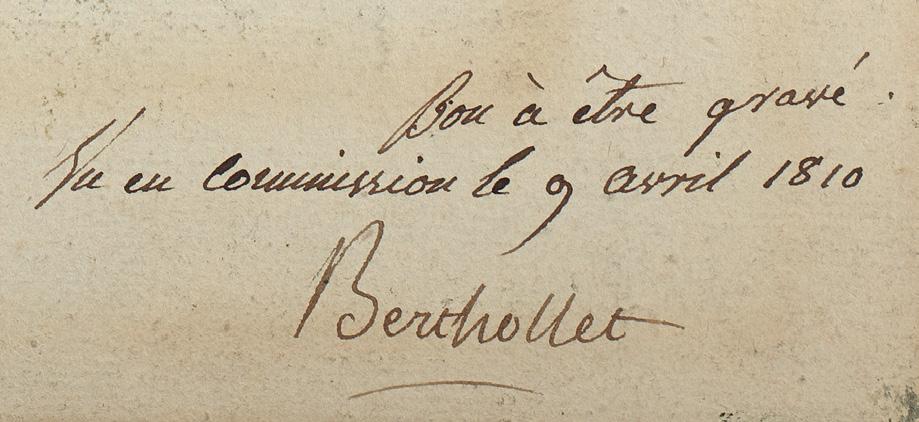 Bon à être gravé.
Vu en Commission le 9 avril 1810
Berthollet